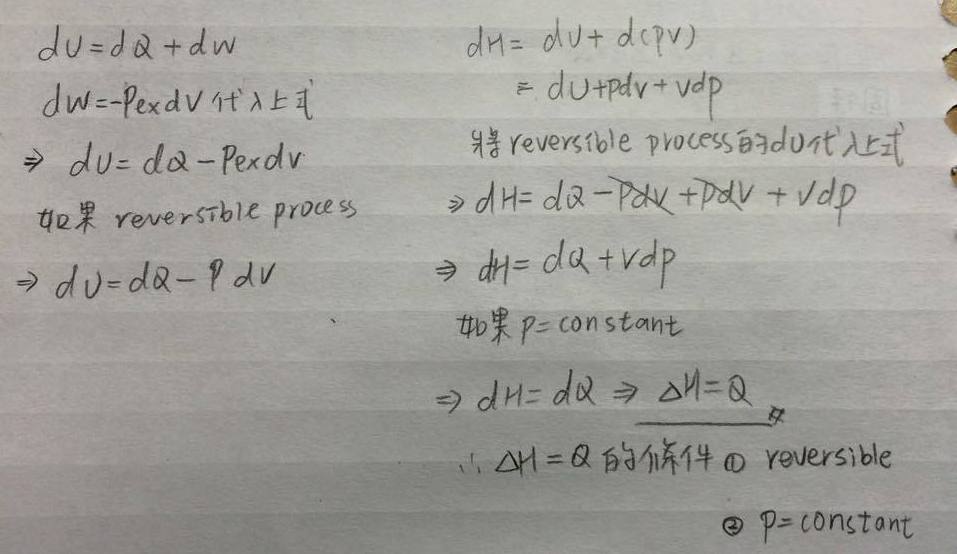 dU=dQ+dW
dW=-PexdV 代入上式
⇒ dU=dQ-Pexdv
如果 reversible process
⇒ dU=dQ-PdV
dH= dU+d(PV)
= dU+pdv+vdp
將reversible process的dU代入上式
⇒ dH=dQ-PdV+PdV+Vdp
⇒ dH=dQ+vdp
如果 p=constant
⇒ dH=dQ ⇒ ΔH=Q
∴ ΔH=Q 的條件 ① reversible
② p=constant